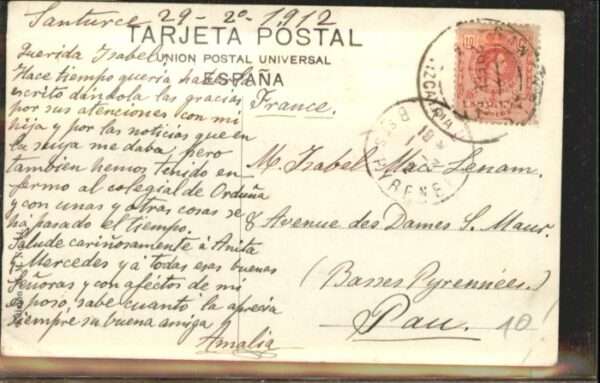 Santurce 29-2º-1912
TARJETA POSTAL
UNION POSTAL UNIVERSAL
ESPAÑA
Querida Isabel
Hace tiempo queria haber
escrito dándola las gracias
por sus atenciones con mi
hija y por las noticias que en
la suya me daba, pero
tambien hemos tenido en-
fermo al colegial de Orduña
y con unas y otras cosas se
há pasado el tiempo.
Salude cariñosamente á Anita
Mercedes y á todas esas buenas
Señoras y con afectos de mi
esposo, sabe cuanto la aprecia
siempre su buena amiga
Amalia
France.
M. Isabel Mac Lenam.
8 Avenue des Dames S. Maur.
(Basses Pyrennées)
Pau.
10
VIZCAYA
10